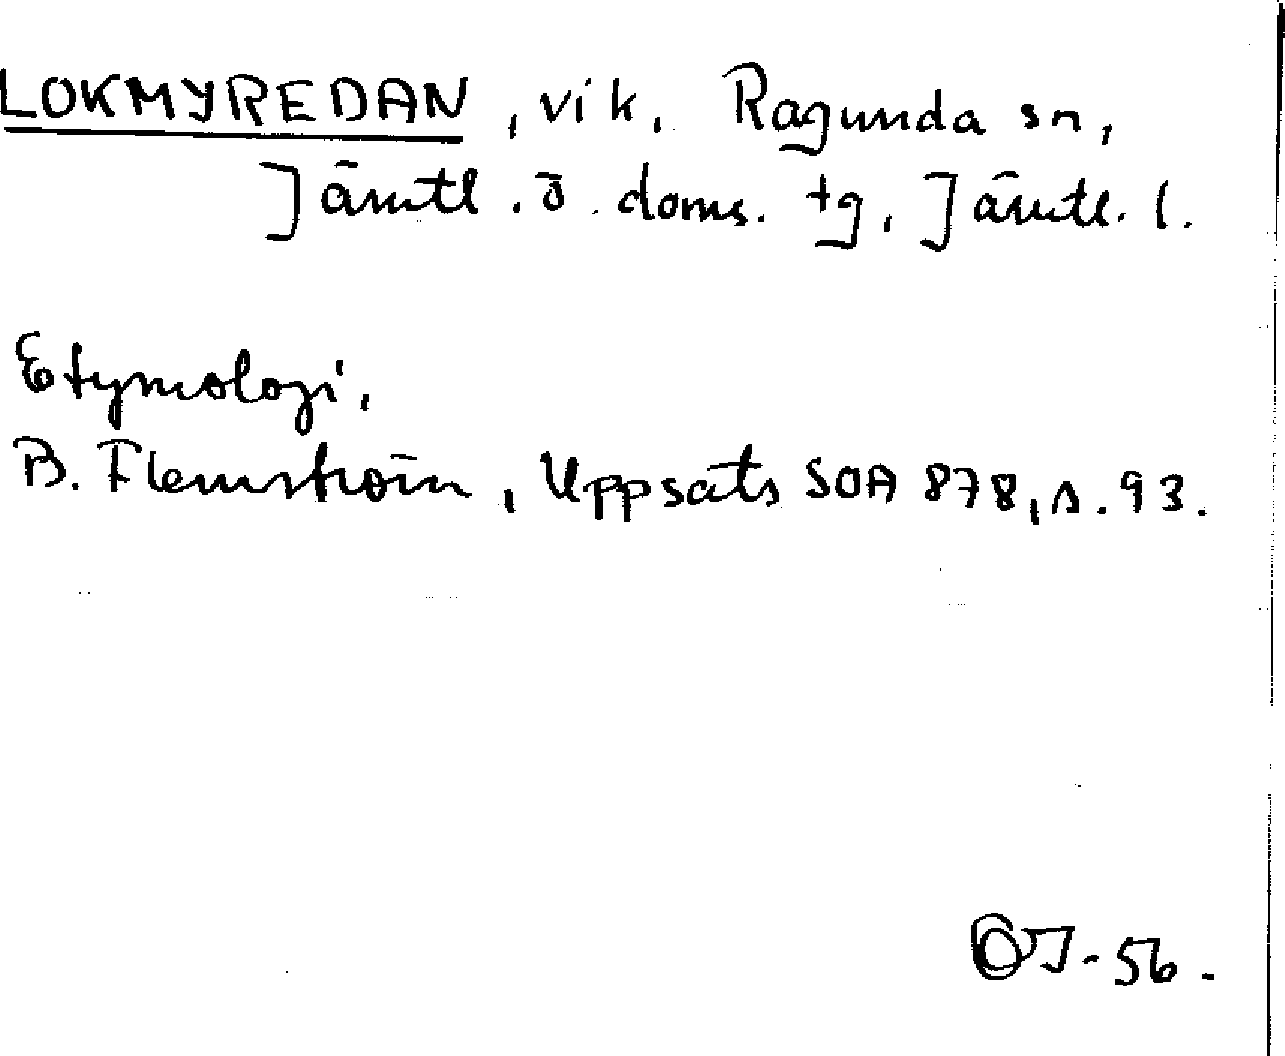 LOKMYREDAN, vik, Ragunda sn,
Jämtl. ö. doms. tg, Jämtl. l.
Etymologi,
B. Flemström, Uppsats SOA 878, s. 93.
OJ-56.